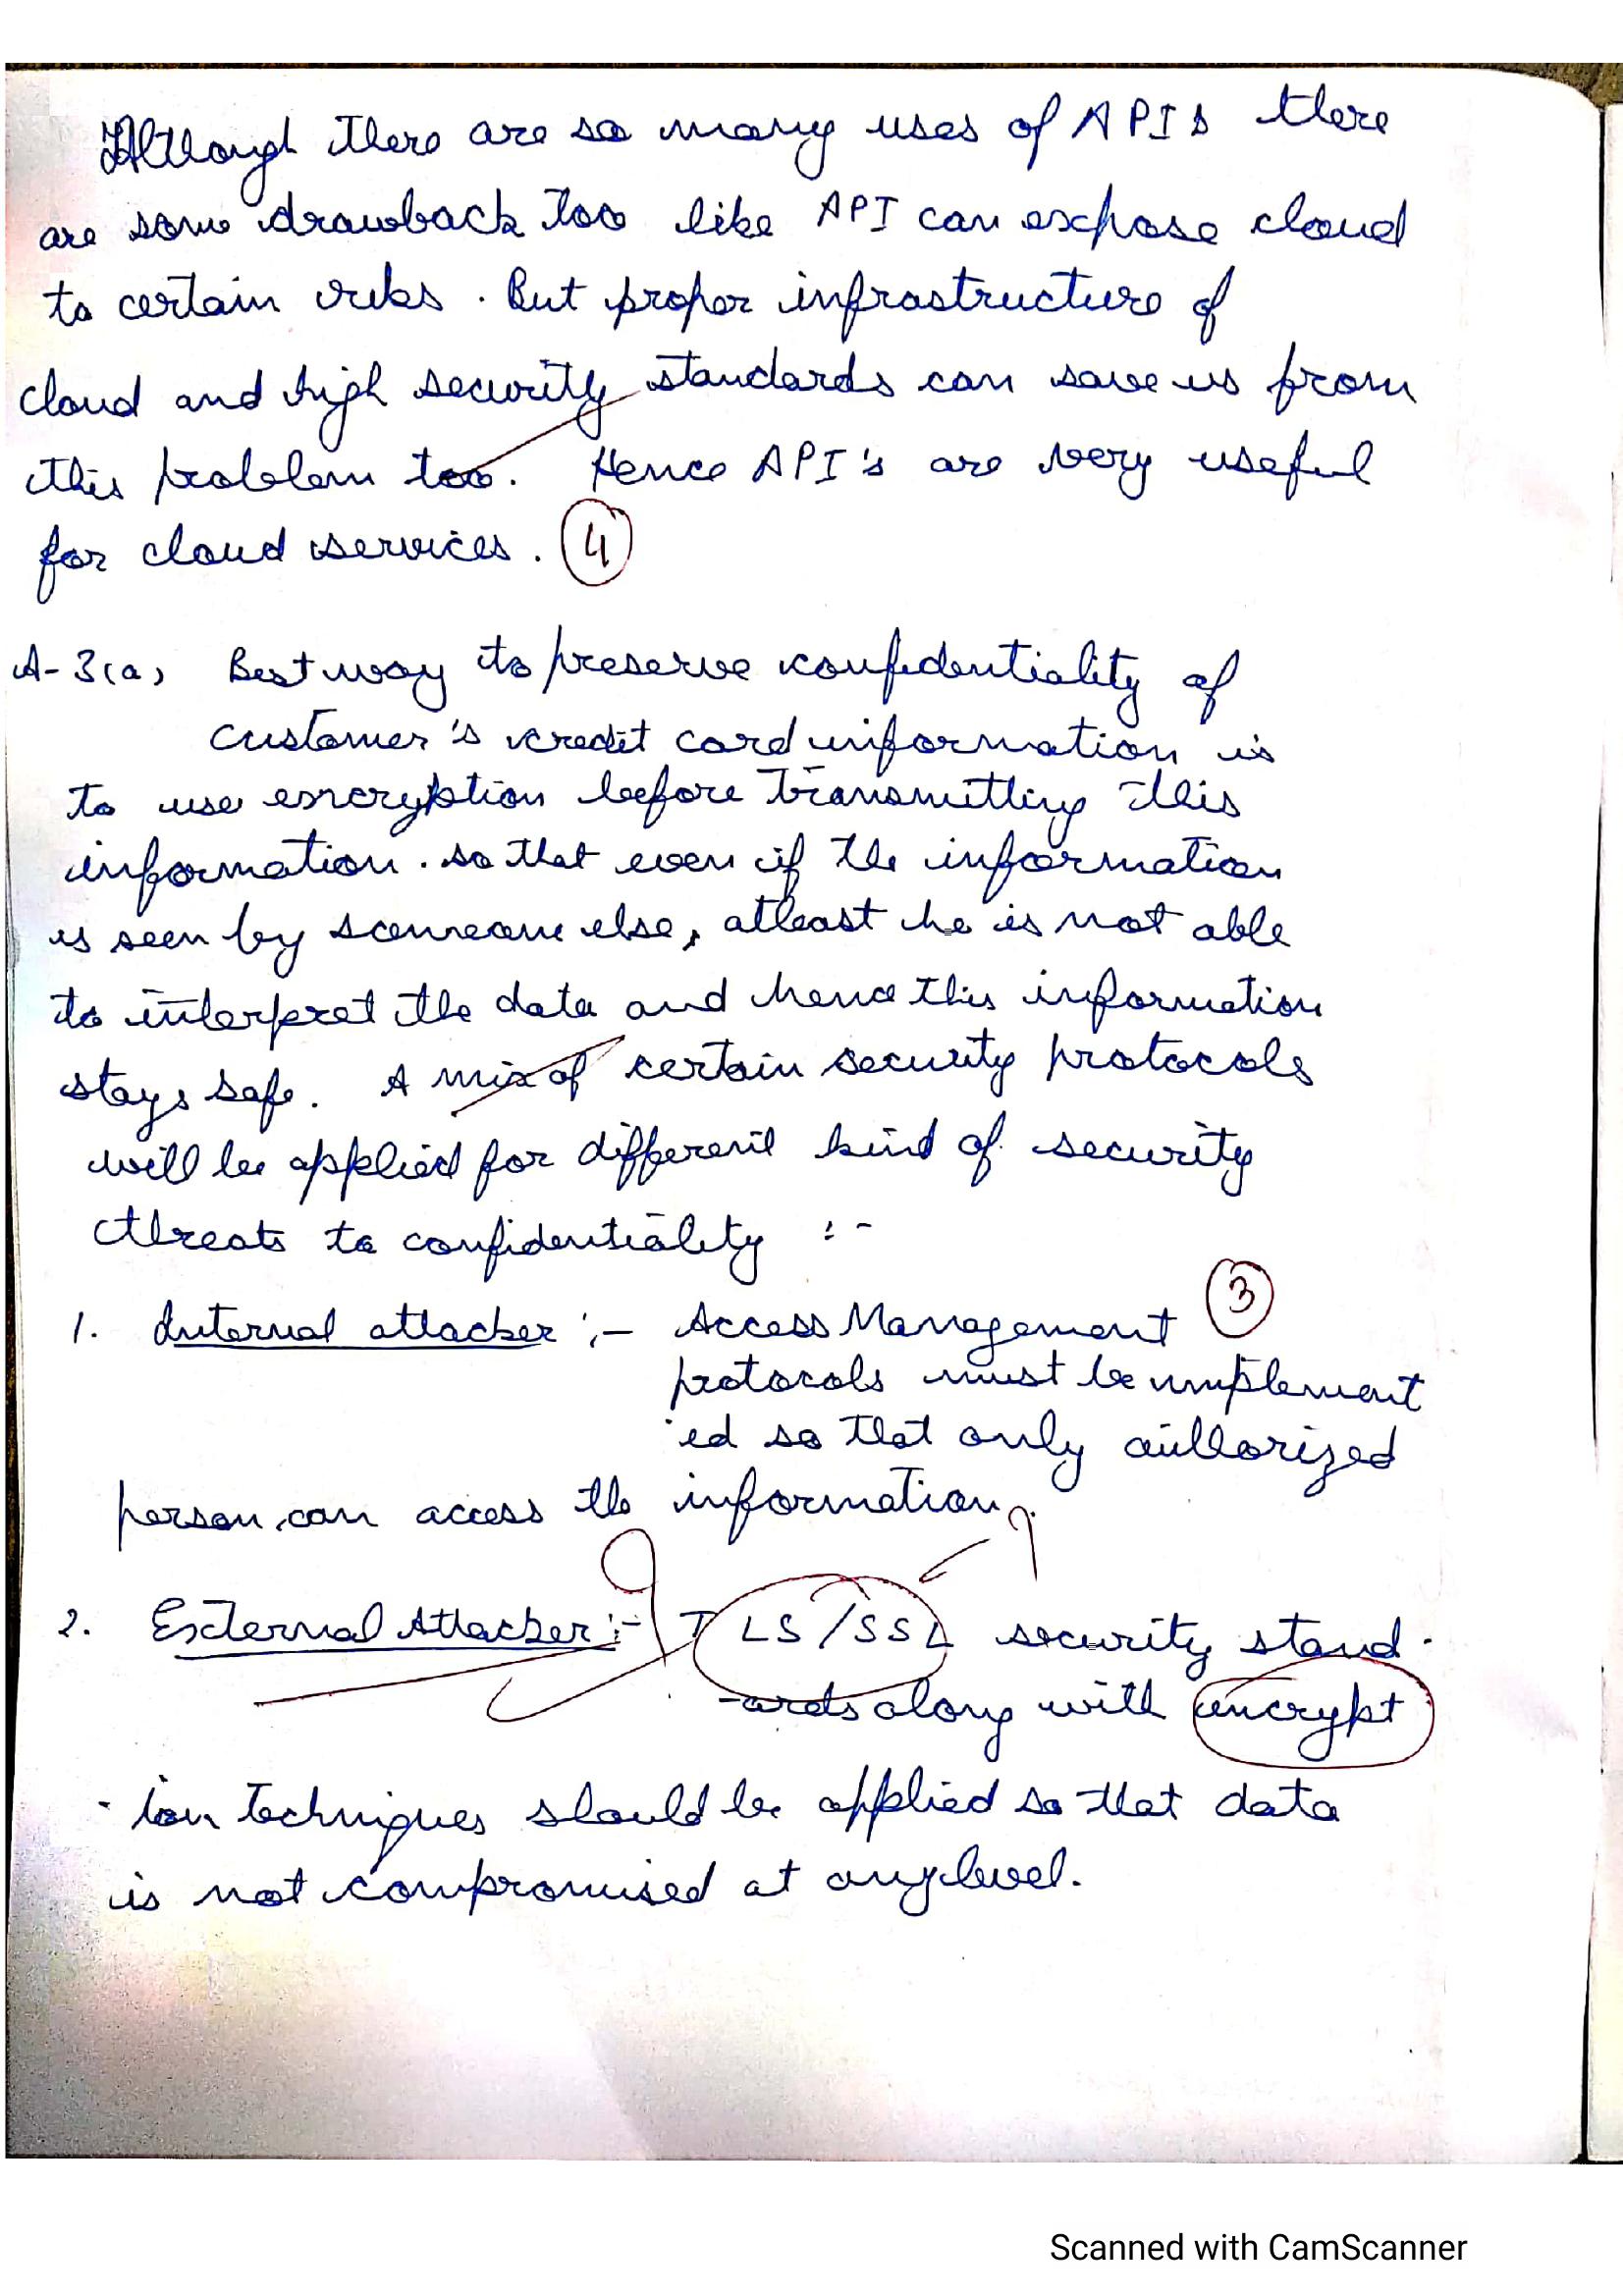 Although there are so many uses of APIs there
are some drawback too like API can expose cloud
to certain risks. But proper infrastructure of
cloud and high security standards can save us from
this problem too. Hence API's are very useful
for cloud services. 4
A-3(a) Best way to preserve confidentiality of
customer's credit card information is
to use encryption before transmitting this
information. so that even if the information
is seen by someone else, atleast he is not able
to interpret the data and hence this information
stays safe. A mix of certain security protocols
will be applied for different kind of security
threats to confidentiality :-
3
1. Internal attacker :- Access Management
protocols must be implement
ed so that only authorized
person can access the information.
2. External Attacker :- TLS/SSL security stand-
-ards along with encrypt
-ion techniques should be applied so that data
is not compromised at any level.
Scanned with CamScanner